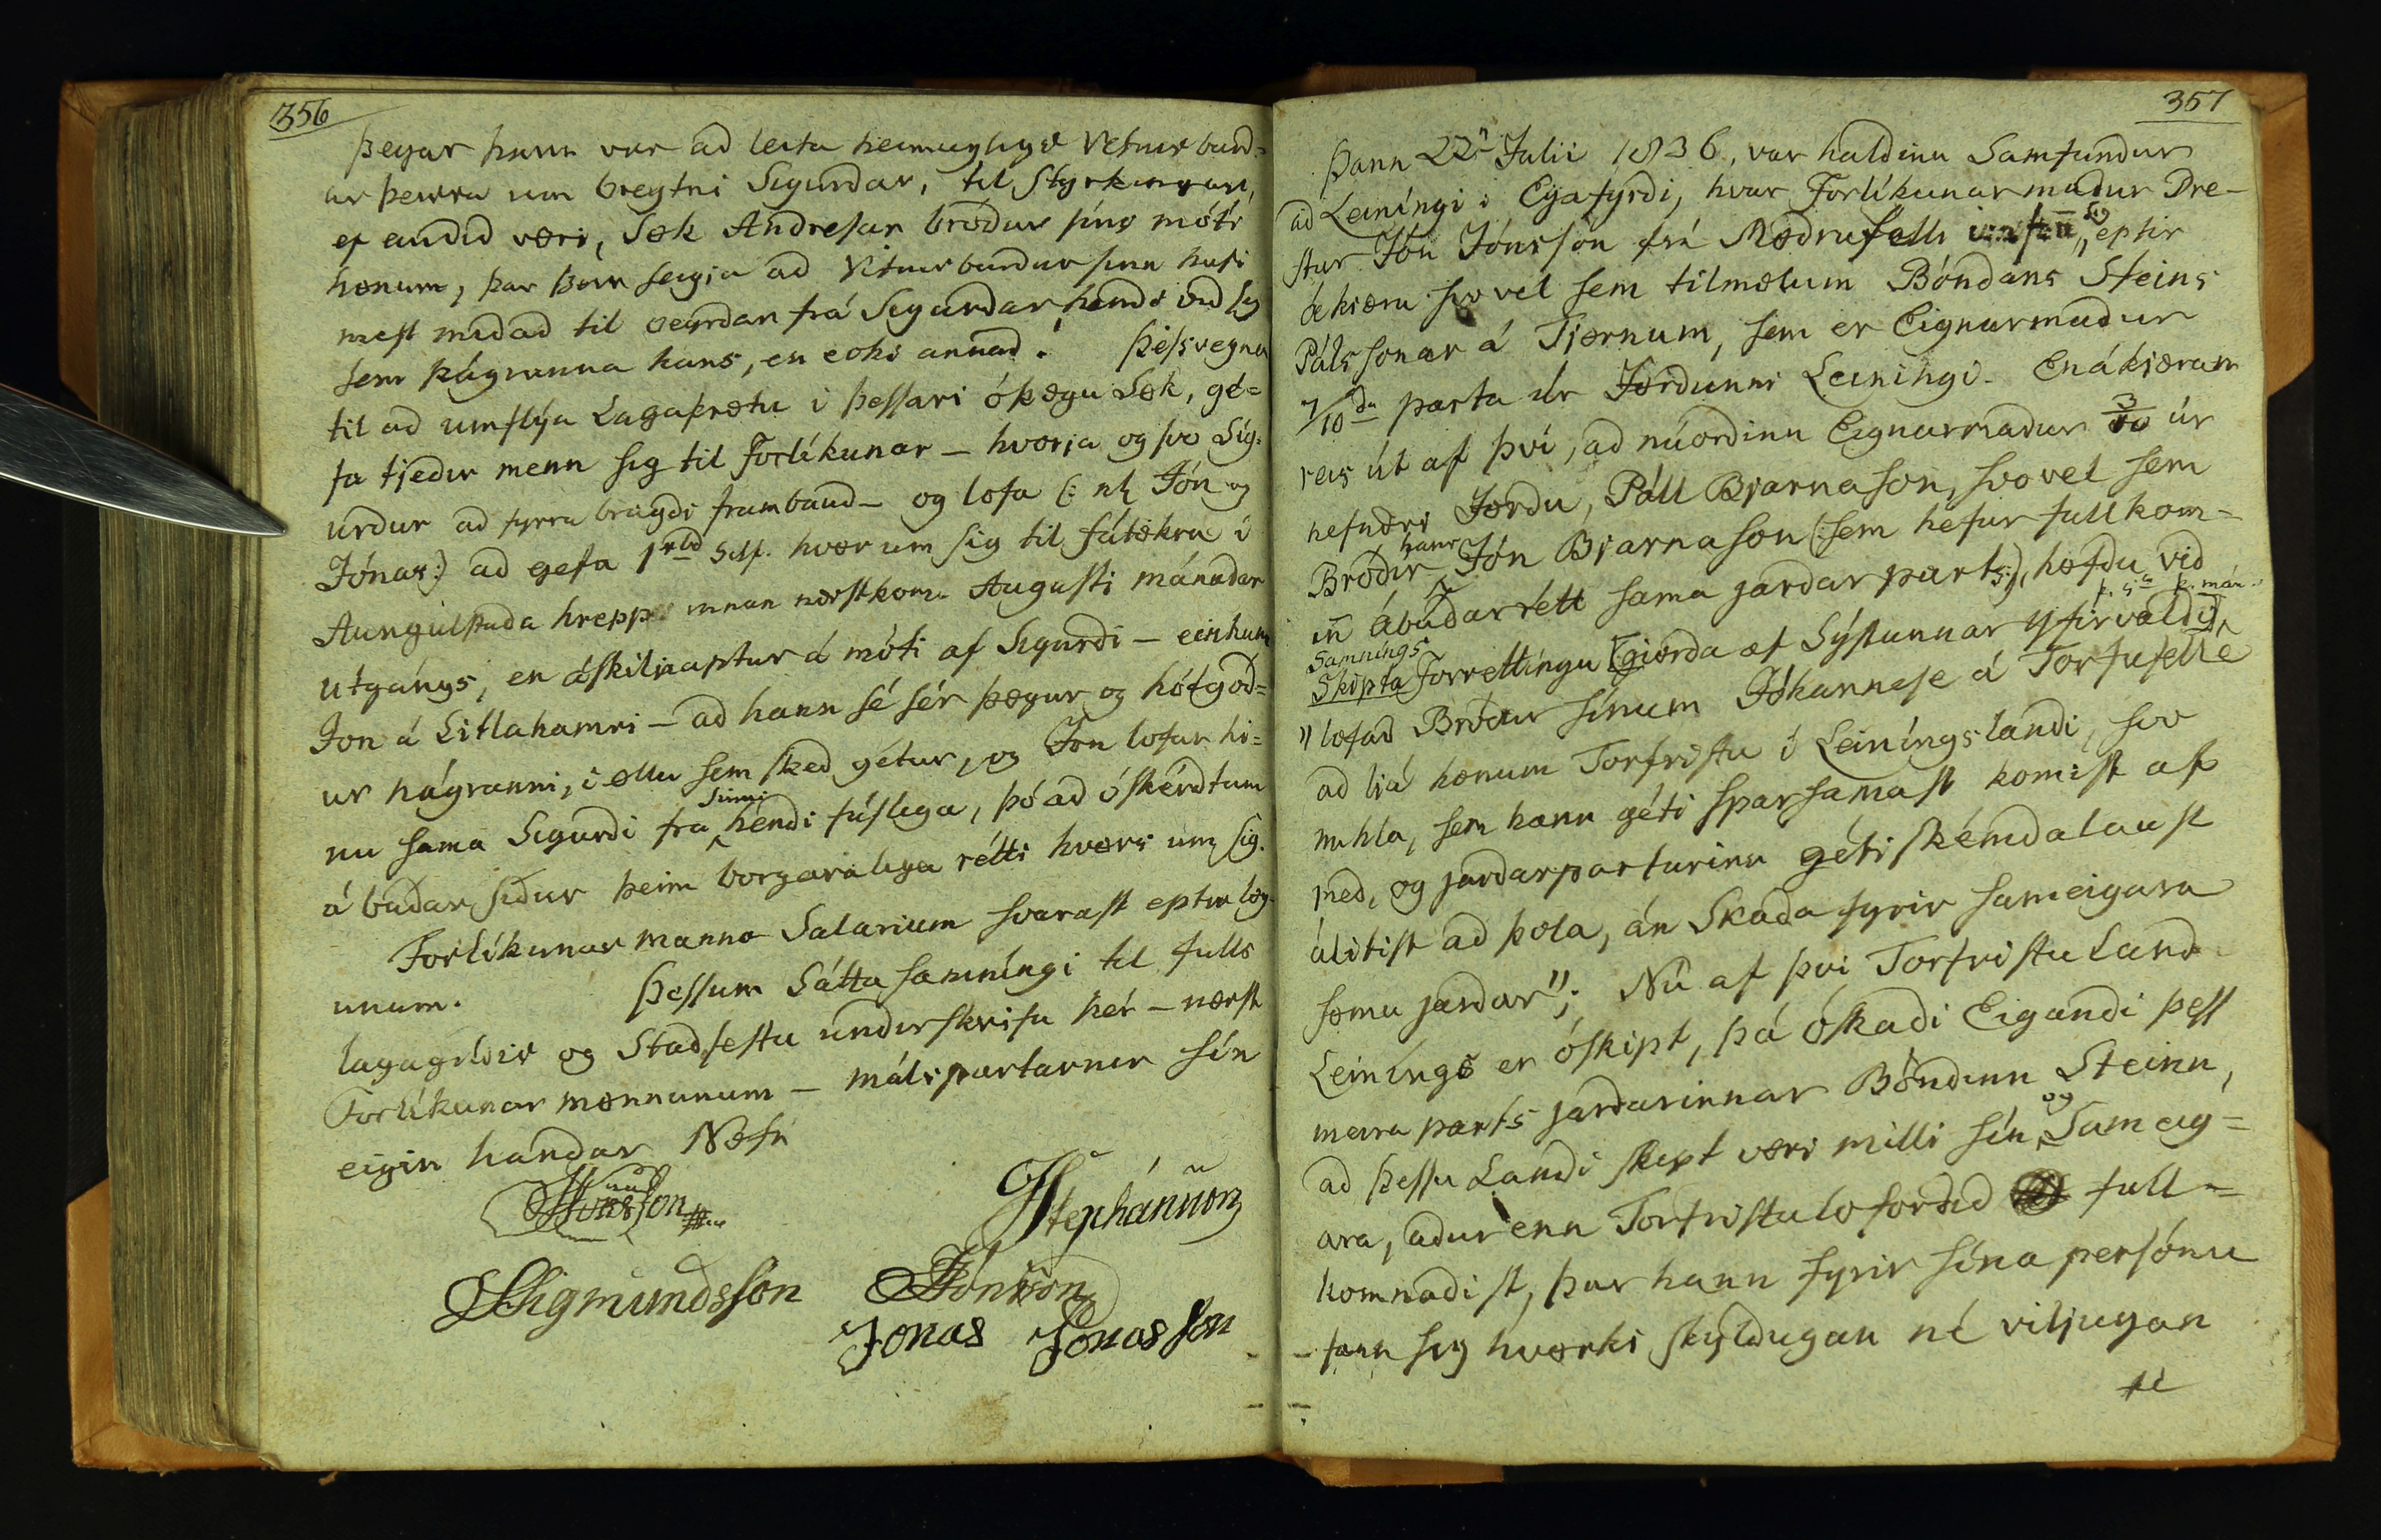 356
þegar hann var að leita heimuglegs Vitnisburð=
ar þeirra um breytni Sigurðar, til Styrkingar,
ef auðið væri, Sök Andresar bróður síns móti
hönum, þar þeir seigia að Vitnisburður sinn hafi
mest miðað til orðan frá Sigurðar hendi við sig
sem Nágranna hans, en ecki annað. Þessvegna
til að umflýa Lagaþrætu i þessari óþægu Sök, gé=
fa tjeðir menn sig til Forlíkunar – hvoria og svo Sig=
urður að fyrra bragði frambauð – og lofa (: nl Jón og
Jónas:) að gefa 1 rbd Silf. hvor um sig til fátækra í
Aungulstaða hrepp innan næstkom. Augusti mánaðar
útgángs, en áskilja aptur á móti af Sigurði – einkum
Jon á Litlahamri – að hann sé sér þægur og hótgóð=
ur nágranni, i öllu sem skeð gétur, og Jon lofar hi=
nu sama Sigurði fra sinni hendi fúslega, þó að óskérðtum
á báðar síður þeim borgaralega rétti hvors um sig.
Forlíkunar manna Salarium svarast eptir lög=
unum. Þessum Sátta samníngi til fulls
lagagildis og Staðfestu undirskrifa hér – næst
Forlíkunar mönnunum – málspartarnir sín
eigin handar Nöfn
JStephánnson
SSigmundsson JJónsson
Jonas Jonasson
357
Þann 22n Julii 1836, var haldinn Samfundur
að Leiníngi i Eyafyrði, hvar Forlíkunarmaður Pre–
stur Jón Jónsson frá Möðrufelli sig, eptir
ákiæru svovel sem tilmælum Bóndans Steins
Pálssonar á Tjörnum, sem er Eignarmaður
7/10da parta úr Jörðunni Leiníngi. En ákiæran
reis út af því, að núorðinn Eignarmaður 3/10 úr
nefndri Jörðu, Páll Bjarnason, svovel sem
Bróðir hans Jón Bjarnason (:sem hefur fullkom=
inn Ábúðarrétt sama jarðar parts:), höfðu við
Samníngs
Skipta Forrettíngu giörða af Sýslunnar Yfirvaldi
„lofað Bróður sínum Jóhannese á Torfufelle
að ljá hönum Torfristu i Leiníngslandi, svo
mikla, sem hann géti sparsamast komist af
með, og jarðarparturinn géti skémdalaust
álitist að þola, án Skaða fyrir sameigara
sömu jarðar“; Nú af þvi Torfristu Land
Leiníngs er óskipt, þá óskaði Eigandi þess
meira parts jarðarinnar Bóndinn Steinn,
að þessu Landi skipt væri milli sín og Sameig=
ara, aður enn Torfristuloforðið full=
komnaðist, þar hann fyrir sína persónu
fann sig hvorki skyldugan né viljugan
til